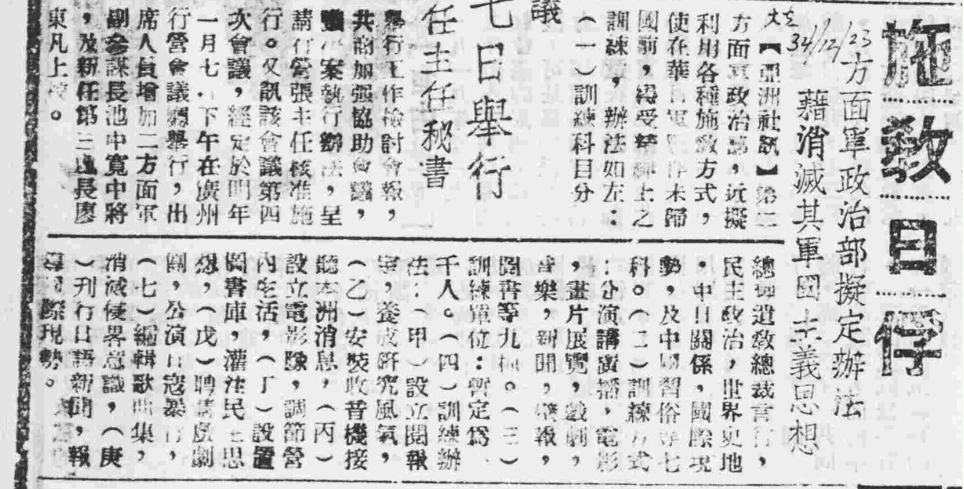 施教日俘
二方面軍政治部擬定辦法
藉消滅其軍國主義思想
34/12/23
大定【亞洲社訊】第二
方面軍政治部,近擬
利用各種施教方式,
使在華日軍 未歸
國前,得受精神上之
訓練,辦法如左:
(一)訓練科目分
總理遺教總裁言行,
民主政治,世界史地
,中日關係,國際現
勢,及中國習俗等七
科。(二)訓練方式
:分演講廣播,電影
,畫片展覽,戲劇,
音樂,新聞,壁報,
圖書等九種。(三)
訓練單位:暫定爲
千人。(四)訓練辦
法:(甲)設立閱報
室,養成研究風氣,
(乙)安裝收音機接
聽本洲消息,(丙)
設立電影隊,調節營
內生活,(丁)設置
圖書庫,灌注民主思
想,(戊)聘請戲劇
團,公演日寇暴行,
(七)編輯歌曲集,
消滅侵畧意識,(庚
)刊行日語新聞,報
導國際現勢。
議
七日舉行
任主任秘書
舉行工作檢討會報,
共商加强協助會議,
案執行辦法,呈
請行營張主任核准施
行。又訊該會議第四
次會議,經定於明年
一月七日下午在廣州
行營會議廳舉行,出
席人員增加二方面軍
副參謀長池中寬中將
,及新任第三 長廖
東凡上校。